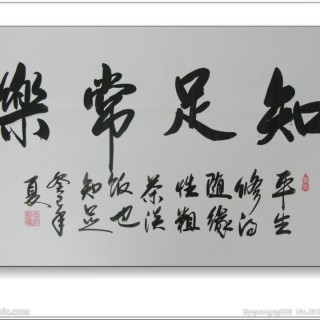 知足常樂
平生
修得
随緣
性粗
茶淡
飯也
知足
夏